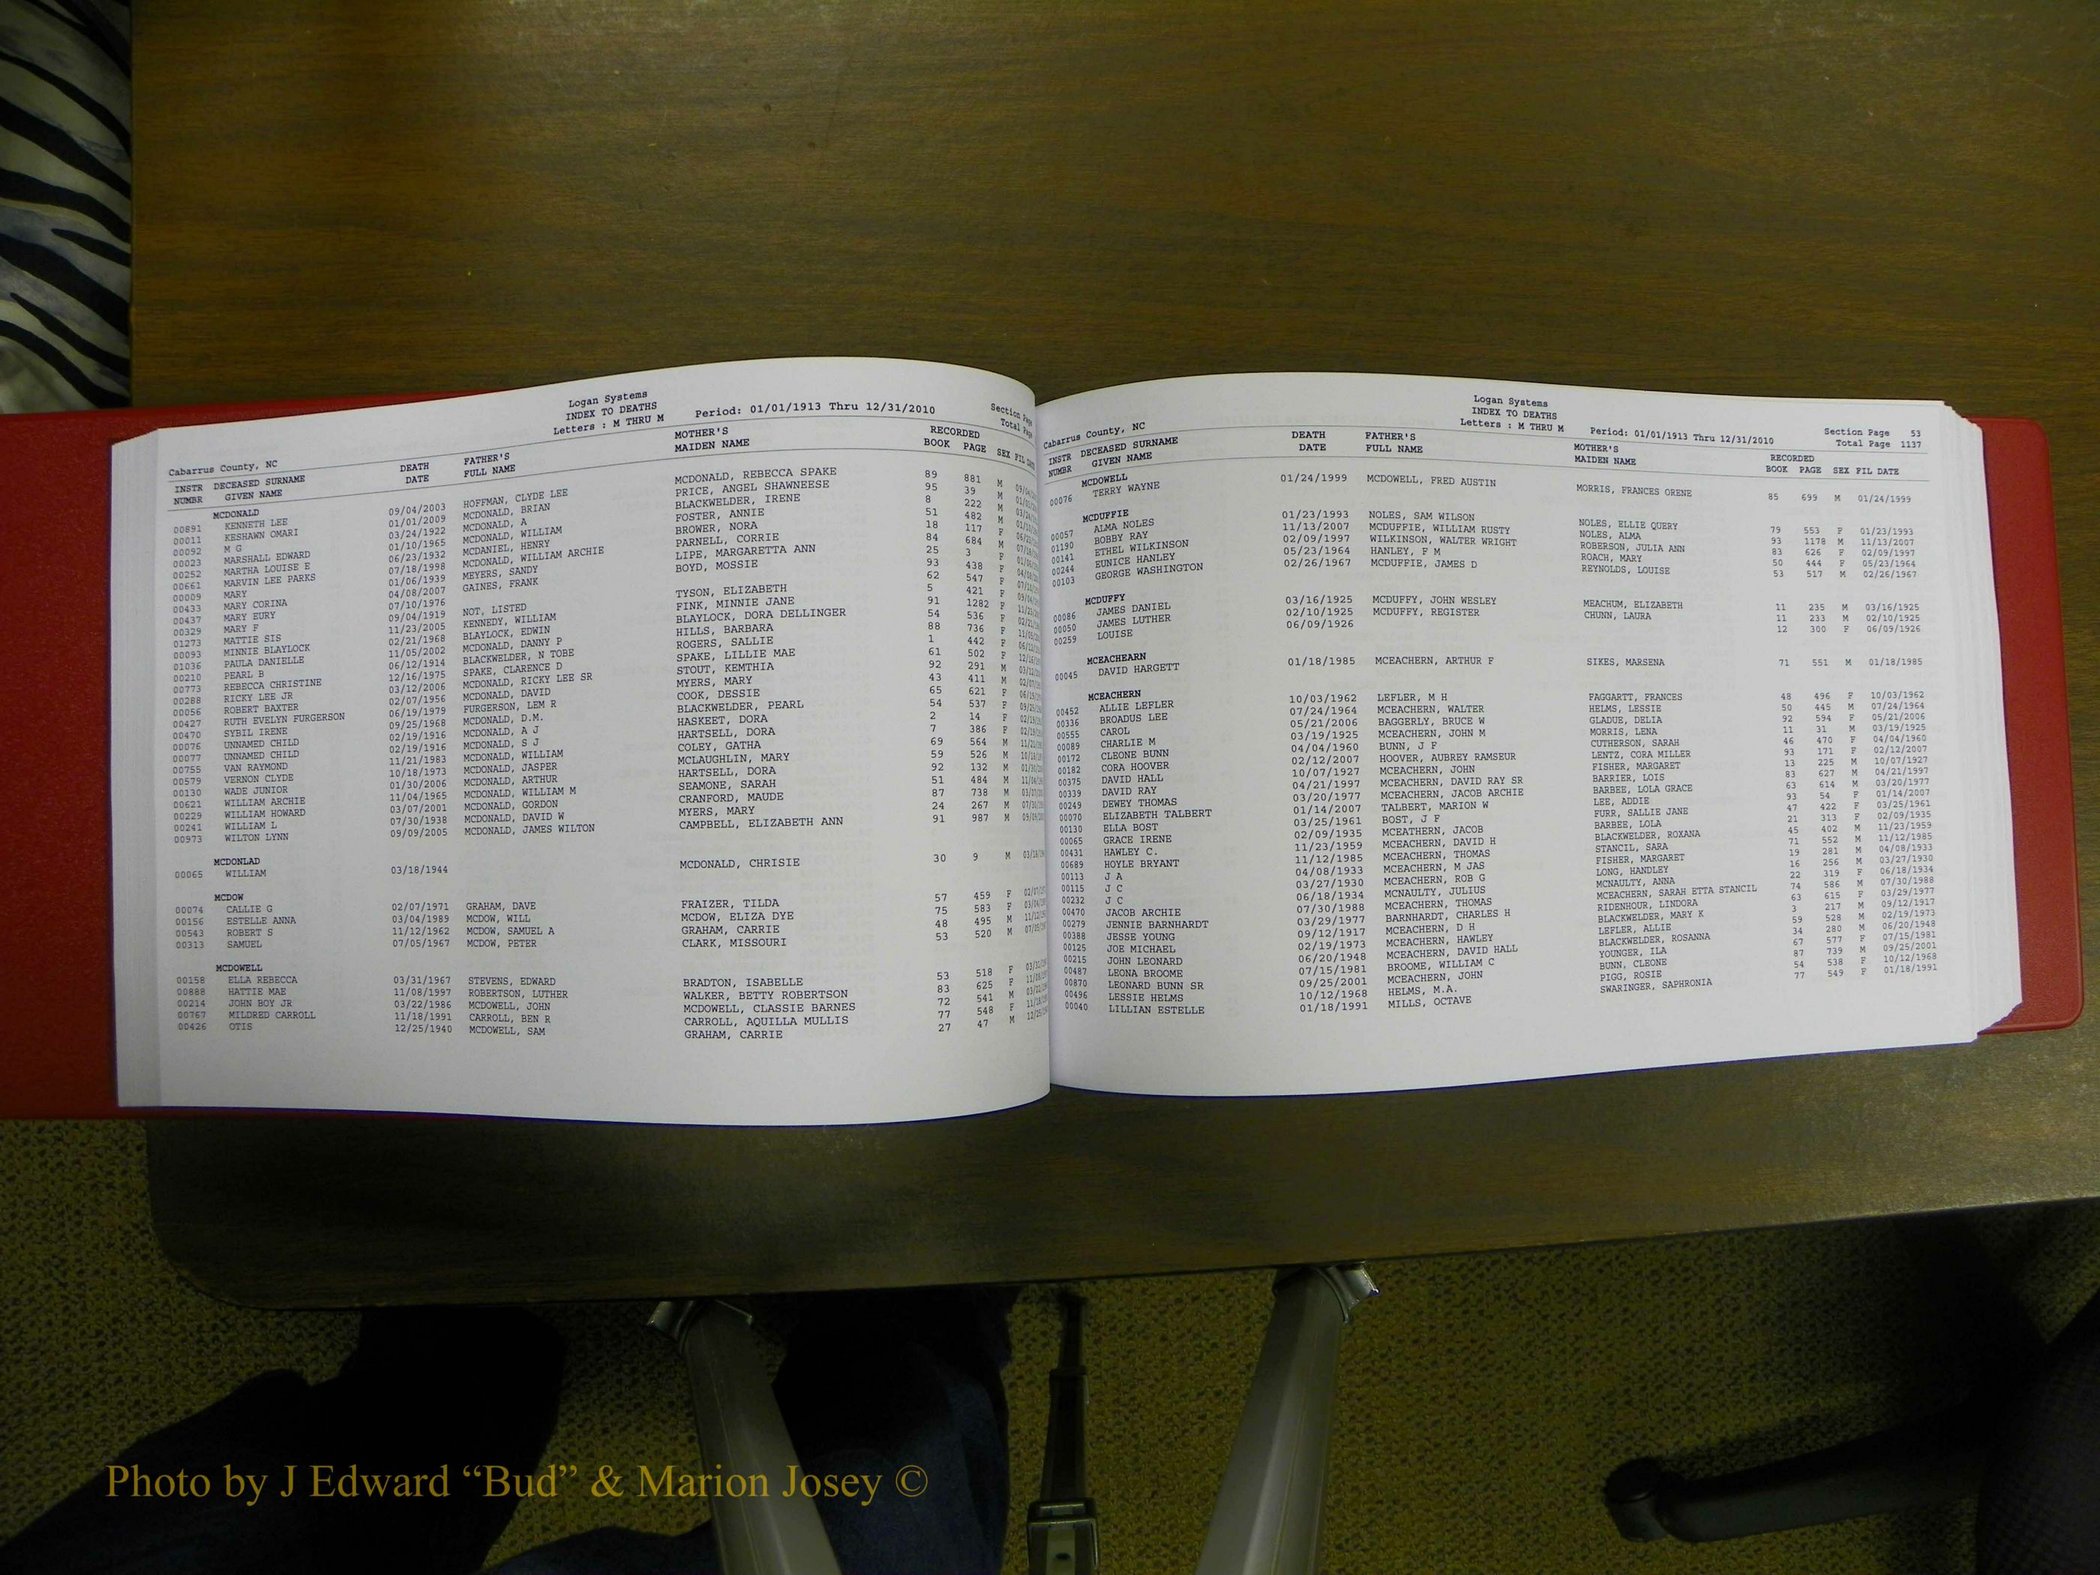 Logan Systems
INDEX TO DEATHS
Letters : M THRU M Period: 01/01/1913 Thru 12/31/2010
Section Page
Total Page
Cabarrus County, NC
INSTR DECEASED SURNAME DEATH FATHER'S MOTHER'S RECORDED
NUMBR GIVEN NAME DATE FULL NAME MAIDEN NAME BOOK PAGE SEX FIL DATE
MCDONALD
00891 KENNETH LEE 09/04/2003 HOFFMAN, CLYDE LEE MCDONALD, REBECCA SPAKE 89 881 M
00011 KESHAWN OMARI 01/01/2009 MCDONALD, BRIAN PRICE, ANGEL SHAWNEESE 95 39 M
00092 M G 03/24/1922 MCDONALD, A BLACKWELDER, IRENE 8 222 M
00023 MARSHALL EDWARD 01/10/1965 MCDONALD, WILLIAM FOSTER, ANNIE 51 482 M
00252 MARTHA LOUISE E 06/23/1932 MCDANIEL, HENRY BROWER, NORA 18 117 F
00661 MARVIN LEE PARKS 07/18/1998 MCDONALD, WILLIAM ARCHIE PARNELL, CORRIE 84 684 M
00009 MARY 01/06/1939 MEYERS, SANDY LIPE, MARGARETTA ANN 25 3 F
00433 MARY CORINA 04/08/2007 GAINES, FRANK BOYD, MOSSIE 93 438 F
00437 MARY EURY 07/10/1976 62 547 F
00329 MARY F 09/04/1919 NOT, LISTED TYSON, ELIZABETH 5 421 F
01273 MATTIE SIS 11/23/2005 KENNEDY, WILLIAM FINK, MINNIE JANE 91 1282 F
00093 MINNIE BLAYLOCK 02/21/1968 BLAYLOCK, EDWIN BLAYLOCK, DORA DELLINGER 54 536 F
01036 PAULA DANIELLE 11/05/2002 MCDONALD, DANNY P HILLS, BARBARA 88 736 F
00210 PEARL B 06/12/1914 BLACKWELDER, N TOBE ROGERS, SALLIE 1 442 F
00773 REBECCA CHRISTINE 12/16/1975 SPAKE, CLARENCE D SPAKE, LILLIE MAE 61 502 F
00288 RICKY LEE JR 03/12/2006 MCDONALD, RICKY LEE SR STOUT, KEMTHIA 92 291 M
00056 ROBERT BAXTER 02/07/1956 MCDONALD, DAVID MYERS, MARY 43 411 M
00427 RUTH EVELYN FURGERSON 06/19/1979 FURGERSON, LEM R COOK, DESSIE 65 621 F
00470 SYBIL IRENE 09/25/1968 MCDONALD, D.M. BLACKWELDER, PEARL 54 537 F
00076 UNNAMED CHILD 02/19/1916 MCDONALD, A J HASKEET, DORA 2 14 F
00077 UNNAMED CHILD 02/19/1916 MCDONALD, S J HARTSELL, DORA 7 386 F
00755 VAN RAYMOND 11/21/1983 MCDONALD, WILLIAM COLEY, GATHA 69 564 M
00579 VERNON CLYDE 10/18/1973 MCDONALD, JASPER MCLAUGHLIN, MARY 59 526 M
00130 WADE JUNIOR 01/30/2006 MCDONALD, ARTHUR HARTSELL, DORA 92 132 M
00621 WILLIAM ARCHIE 11/04/1965 MCDONALD, WILLIAM M SEAMONE, SARAH 51 484 M
00229 WILLIAM HOWARD 03/07/2001 MCDONALD, GORDON CRANFORD, MAUDE 87 738 M
00241 WILLIAM L 07/30/1938 MCDONALD, DAVID W MYERS, MARY 24 267 M
00973 WILTON LYNN 09/09/2005 MCDONALD, JAMES WILTON CAMPBELL, ELIZABETH ANN 91 987 M
MCDONLAD
00065 WILLIAM 03/18/1944 MCDONALD, CHRISIE 30 9 M
MCDOW
00074 CALLIE G 02/07/1971 GRAHAM, DAVE FRAIZER, TILDA 57 459 F
00156 ESTELLE ANNA 03/04/1989 MCDOW, WILL MCDOW, ELIZA DYE 75 583 F
00543 ROBERT S 11/12/1962 MCDOW, SAMUEL A GRAHAM, CARRIE 48 495 M
00313 SAMUEL 07/05/1967 MCDOW, PETER CLARK, MISSOURI 53 520 M
MCDOWELL
00158 ELLA REBECCA 03/31/1967 STEVENS, EDWARD BRADTON, ISABELLE 53 518 F
00888 HATTIE MAE 11/08/1997 ROBERTSON, LUTHER WALKER, BETTY ROBERTSON 83 625 F
00214 JOHN BOY JR 03/22/1986 MCDOWELL, JOHN MCDOWELL, CLASSIE BARNES 72 541 M
00767 MILDRED CARROLL 11/18/1991 CARROLL, BEN R CARROLL, AQUILLA MULLIS 77 548 F
00426 OTIS 12/25/1940 MCDOWELL, SAM GRAHAM, CARRIE 27 47 M
Logan Systems
INDEX TO DEATHS
Letters : M THRU M Period: 01/01/1913 Thru 12/31/2010
Section Page 53
Total Page 1137
Cabarrus County, NC
INSTR DECEASED SURNAME DEATH FATHER'S MOTHER'S RECORDED
NUMBR GIVEN NAME DATE FULL NAME MAIDEN NAME BOOK PAGE SEX FIL DATE
MCDOWELL
00076 TERRY WAYNE 01/24/1999 MCDOWELL, FRED AUSTIN MORRIS, FRANCES ORENE 85 699 M 01/24/1999
MCDUFFIE
00057 ALMA NOLES 01/23/1993 NOLES, SAM WILSON NOLES, ELLIE QUERY 79 553 F 01/23/1993
01190 BOBBY RAY 11/13/2007 MCDUFFIE, WILLIAM RUSTY NOLES, ALMA 93 1178 M 11/13/2007
00141 ETHEL WILKINSON 02/09/1997 WILKINSON, WALTER WRIGHT ROBERSON, JULIA ANN 83 626 F 02/09/1997
00244 EUNICE HANLEY 05/23/1964 HANLEY, F M ROACH, MARY 50 444 F 05/23/1964
00103 GEORGE WASHINGTON 02/26/1967 MCDUFFIE, JAMES D REYNOLDS, LOUISE 53 517 M 02/26/1967
MCDUFFY
00086 JAMES DANIEL 03/16/1925 MCDUFFY, JOHN WESLEY MEACHUM, ELIZABETH 11 235 M 03/16/1925
00050 JAMES LUTHER 02/10/1925 MCDUFFY, REGISTER CHUNN, LAURA 11 233 M 02/10/1925
00259 LOUISE 06/09/1926 12 300 F 06/09/1926
MCEACHEARN
00045 DAVID HARGETT 01/18/1985 MCEACHERN, ARTHUR F SIKES, MARSENA 71 551 M 01/18/1985
MCEACHERN
00452 ALLIE LEFLER 10/03/1962 LEFLER, M H FAGGARTT, FRANCES 48 496 F 10/03/1962
00336 BROADUS LEE 07/24/1964 MCEACHERN, WALTER HELMS, LESSIE 50 445 M 07/24/1964
00555 CAROL 05/21/2006 BAGGERLY, BRUCE W GLADUE, DELIA 92 594 F 05/21/2006
00089 CHARLIE M 03/19/1925 MCEACHERN, JOHN M MORRIS, LENA 11 31 M 03/19/1925
00172 CLEONE BUNN 04/04/1960 BUNN, J F CUTHERSON, SARAH 46 470 F 04/04/1960
00182 CORA HOOVER 02/12/2007 HOOVER, AUBREY RAMSEUR LENTZ, CORA MILLER 93 171 F 02/12/2007
00375 DAVID HALL 10/07/1927 MCEACHERN, JOHN FISHER, MARGARET 13 225 M 10/07/1927
00339 DAVID RAY 04/21/1997 MCEACHERN, DAVID RAY SR BARRIER, LOIS 83 627 M 04/21/1997
00249 DEWEY THOMAS 03/20/1977 MCEACHERN, JACOB ARCHIE BARBEE, LOLA GRACE 63 614 M 03/20/1977
00070 ELIZABETH TALBERT 01/14/2007 TALBERT, MARION W LEE, ADDIE 93 54 F 01/14/2007
00130 ELLA BOST 03/25/1961 BOST, J F FURR, SALLIE JANE 47 422 F 03/25/1961
00065 GRACE IRENE 02/09/1935 MCEATHERN, JACOB BARBEE, LOLA 21 313 F 02/09/1935
00431 HAWLEY C. 11/23/1959 MCEACHERN, DAVID H BLACKWELDER, ROXANA 45 402 M 11/23/1959
00689 HOYLE BRYANT 11/12/1985 MCEACHERN, THOMAS STANCIL, SARA 71 552 M 11/12/1985
00113 J A 04/08/1933 MCEACHERN, M JAS FISHER, MARGARET 19 281 M 04/08/1933
00115 J C 03/27/1930 MCEACHERN, ROB G LONG, HANDLEY 16 256 M 03/27/1930
00232 J C 06/18/1934 MCNAULTY, JULIUS MCNAULTY, ANNA 22 319 F 06/18/1934
00470 JACOB ARCHIE 07/30/1988 MCEACHERN, THOMAS MCEACHERN, SARAH ETTA STANCIL 74 586 M 07/30/1988
00279 JENNIE BARNHARDT 03/29/1977 BARNHARDT, CHARLES H RIDENHOUR, LINDORA 63 615 F 03/29/1977
00388 JESSE YOUNG 09/12/1917 MCEACHERN, D H BLACKWELDER, MARY K 3 217 M 09/12/1917
00125 JOE MICHAEL 02/19/1973 MCEACHERN, HAWLEY LEFLER, ALLIE 59 528 M 02/19/1973
00215 JOHN LEONARD 06/20/1948 MCEACHERN, DAVID HALL BLACKWELDER, ROSANNA 34 280 M 06/20/1948
00487 LEONA BROOME 07/15/1981 BROOME, WILLIAM C YOUNGER, ILA 67 577 F 07/15/1981
00870 LEONARD BUNN SR 09/25/2001 MCEACHERN, JOHN BUNN, CLEONE 87 739 M 09/25/2001
00496 LESSIE HELMS 10/12/1968 HELMS, M.A. PIGG, ROSIE 54 538 F 10/12/1968
00040 LILLIAN ESTELLE 01/18/1991 MILLS, OCTAVE SWARINGER, SAPHRONIA 77 549 F 01/18/1991
Photo by J Edward “Bud” & Marion Josey ©